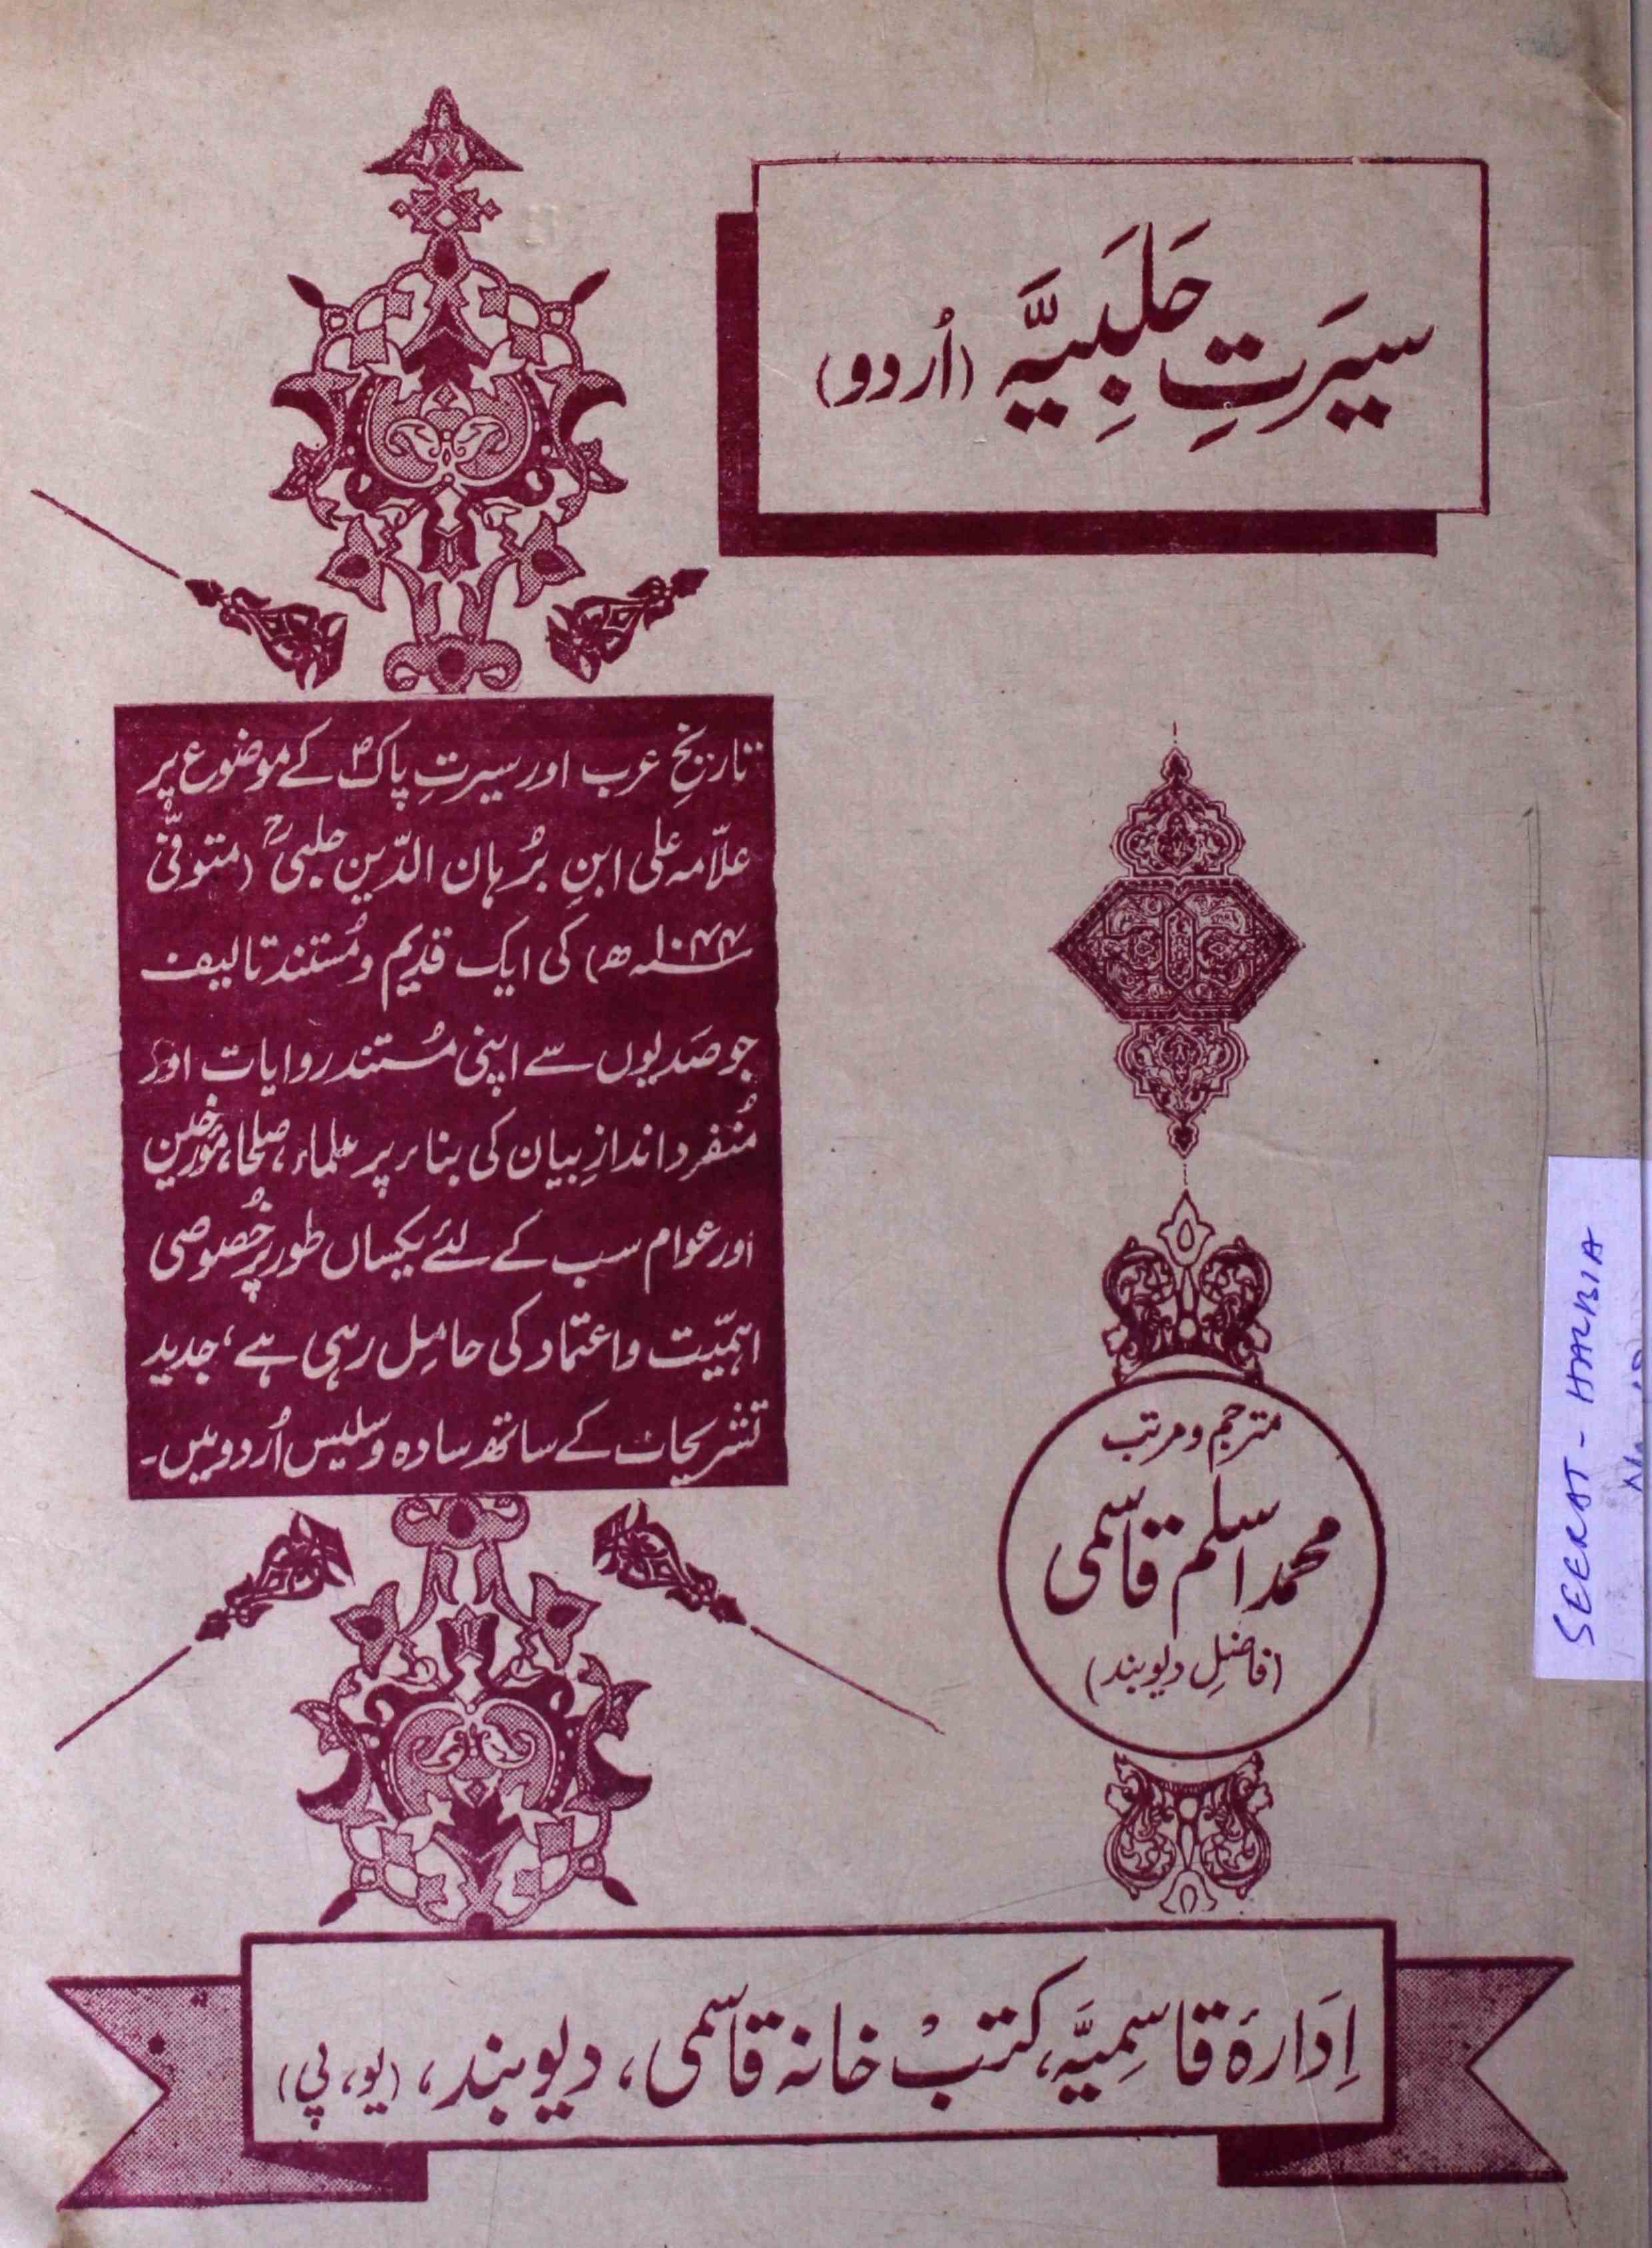 سیرَتِ حَلَبِیَّہ (اُردو)
تاریخِ عرب اور سیرتِ پاکؐ کے موضوع پر
علاّمہ علی ابنِ بُرہان الدّین حلبیؒ (متوفّٰی
۱۰۴۴ھ) کی ایک قدیم و مُستند تالیف
جو صَدیوں سے اپنی مُستند روایات اور
مُنفرد اندازِ بیان کی بناء پر علماء، صلحا، مؤرخین
اور عوام سب کے لئے یکساں طور پر خُصوصی
اہمیّت و اعتماد کی حامِل رہی ہے، جدید
تشریحات کے ساتھ سادہ و سلیس اُردو میں۔
مترجم و مرتب
محمد اسلم قاسمی
(فاضلِ دیوبند)
اِدَارۂ قاسِمِیَّہ، کتبْ خانہ قاسمی، دیوبند، (یو، پی)
SEERAT - HALBIA